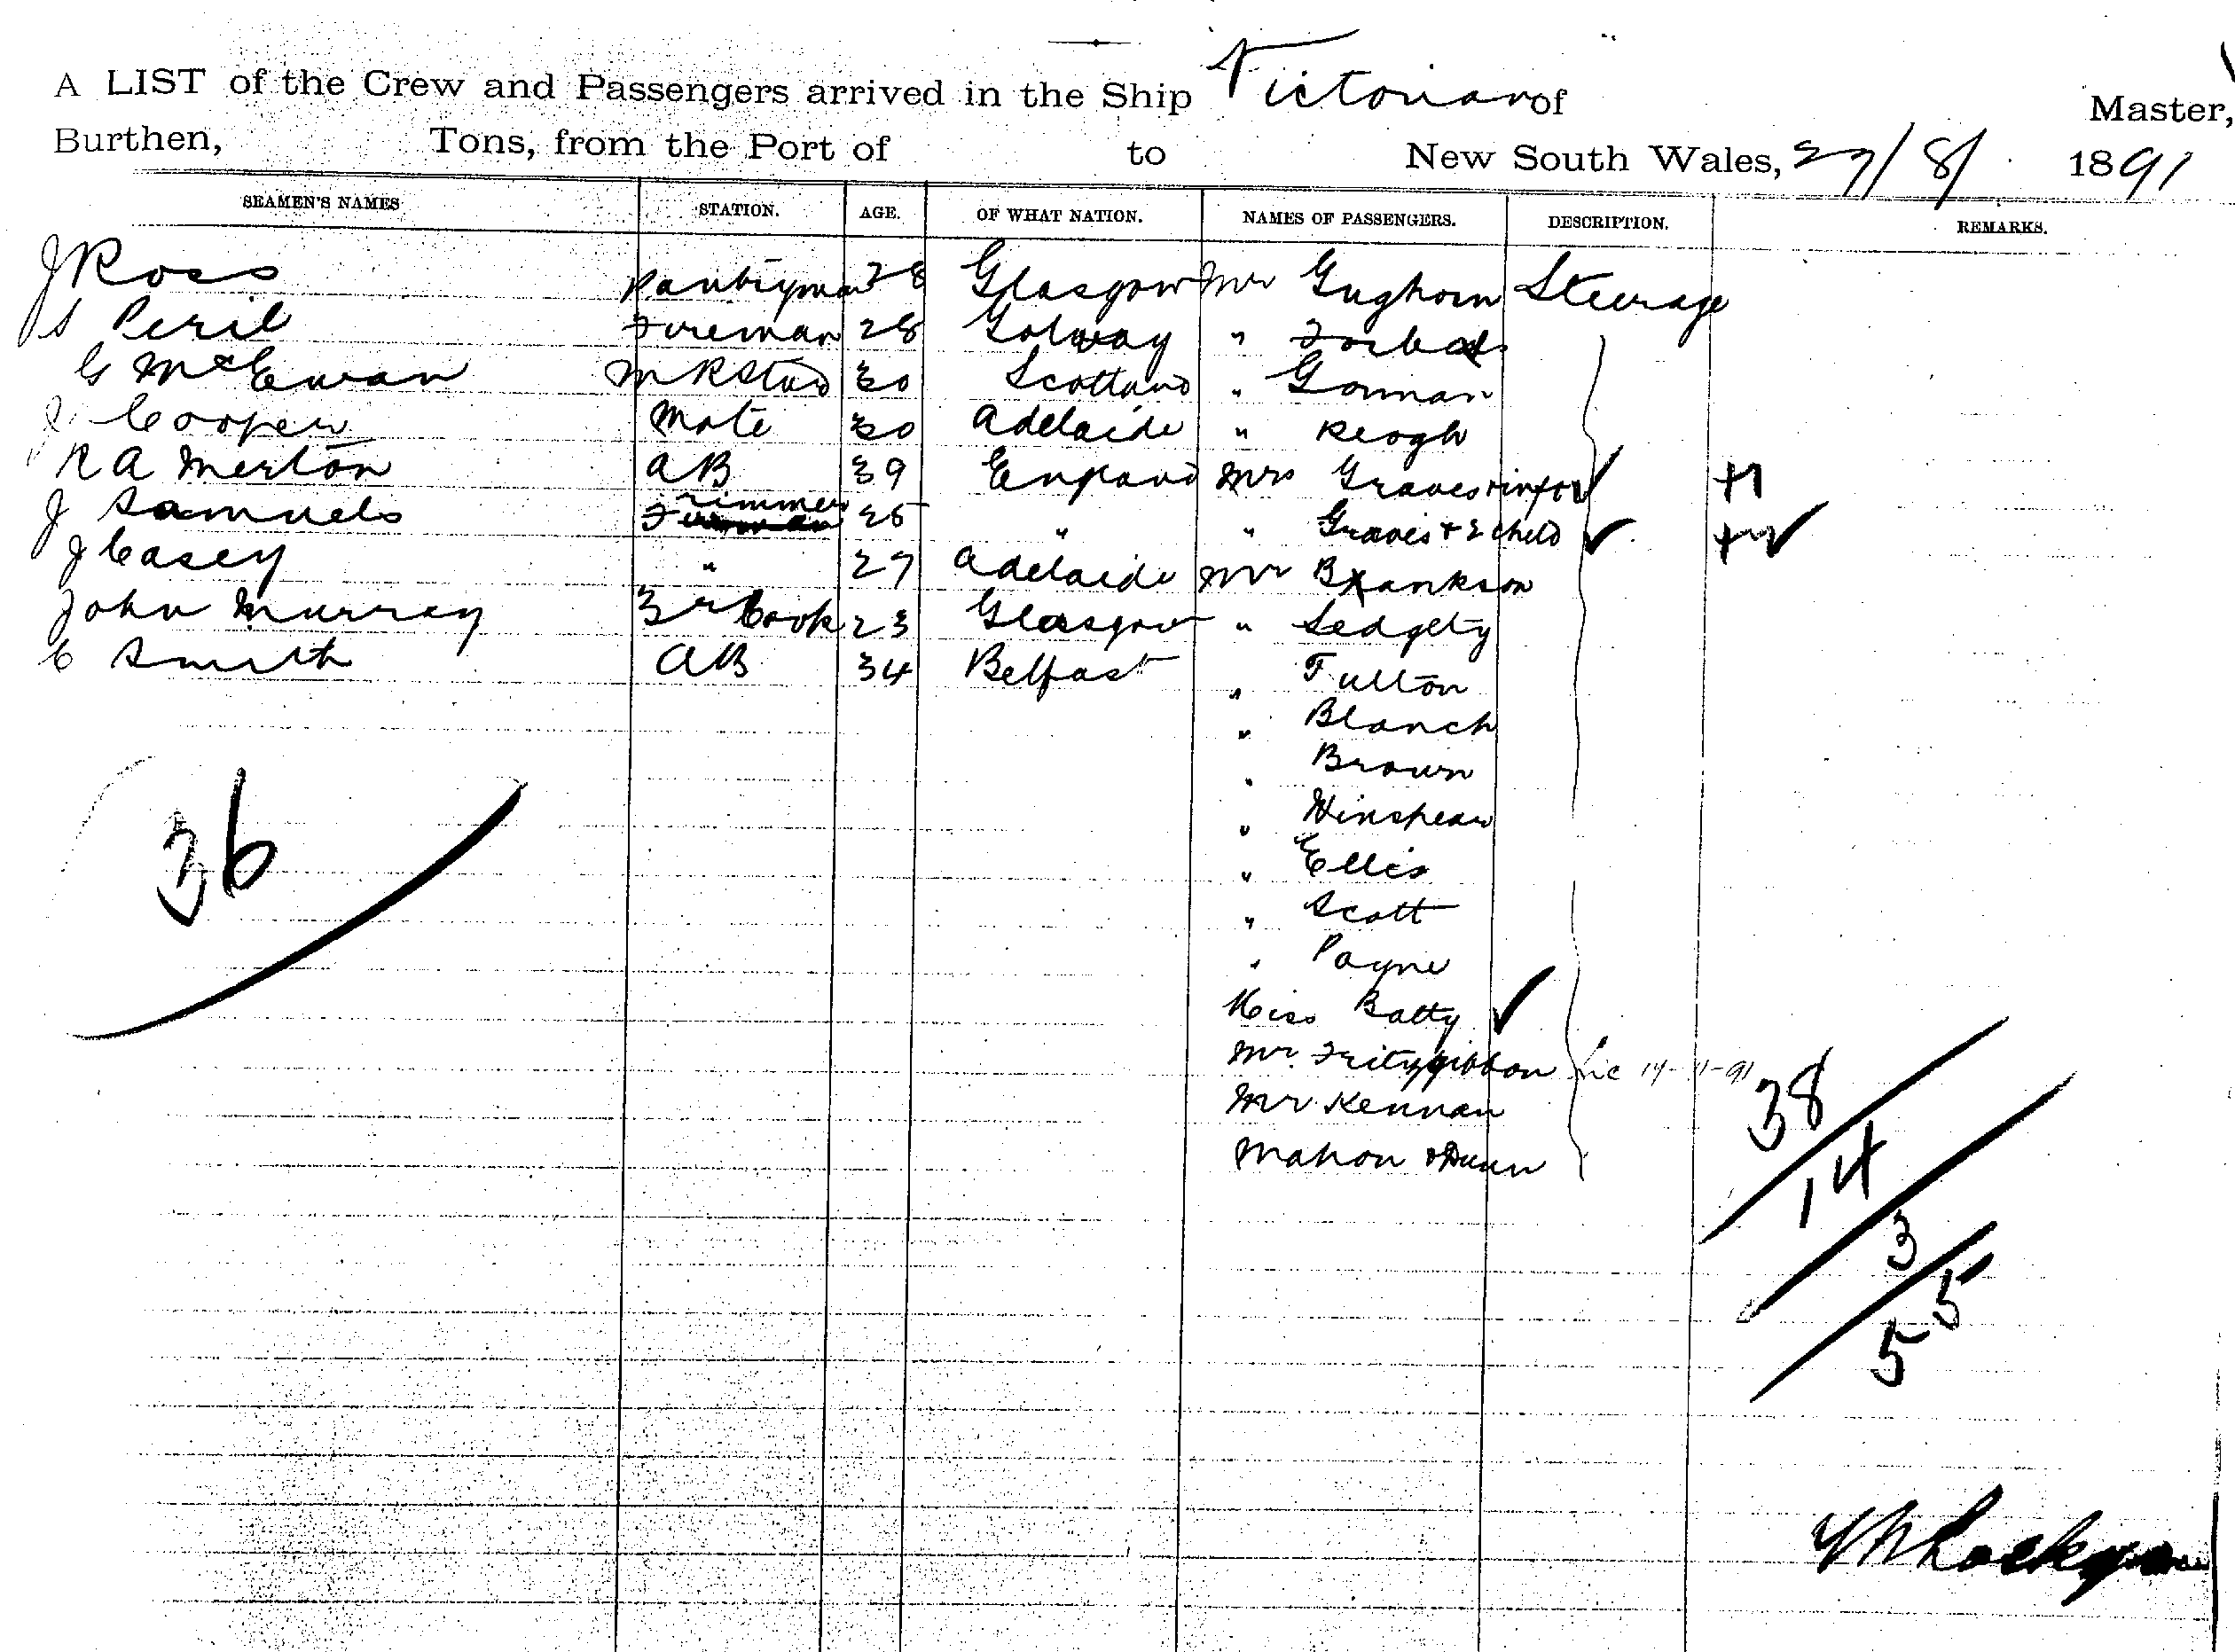 A LIST of the Crew and Passengers arrived in the Ship Victorian of Master,
Burthen, Tons, from the Port of to New South Wales, 27/8/ 1891
SEAMEN'S NAMES STATION. AGE. OF WHAT NATION. NAMES OF PASSENGERS. DESCRIPTION. REMARKS.
J Ross Pantryman 28 Glasgow Mr Steerage
S Peril Fireman 28 Golway " Forbes
G McEwan M R Stwd 30 Scotland " Gorman
J Cooper Mate 30 Adelaide " Keogh
R A Merton AB 39 England Mrs Graves + infant +1
J Samuels Trimmer 25 " " Graves + 2 child +2
J Casey " 27 Adelaide Mr Bankson
John Murray 3rd Cook 23 Glasgow " Sedgety
C Smith AB 34 Belfast " Fulton
" Blanch
" Brown
" Hinspear
" Ellis
" Scott
" Payne
36
Miss Batty
Mr. Fritzgibbon
Mr Kennan
Mahon & Dunn
38
14
3
55